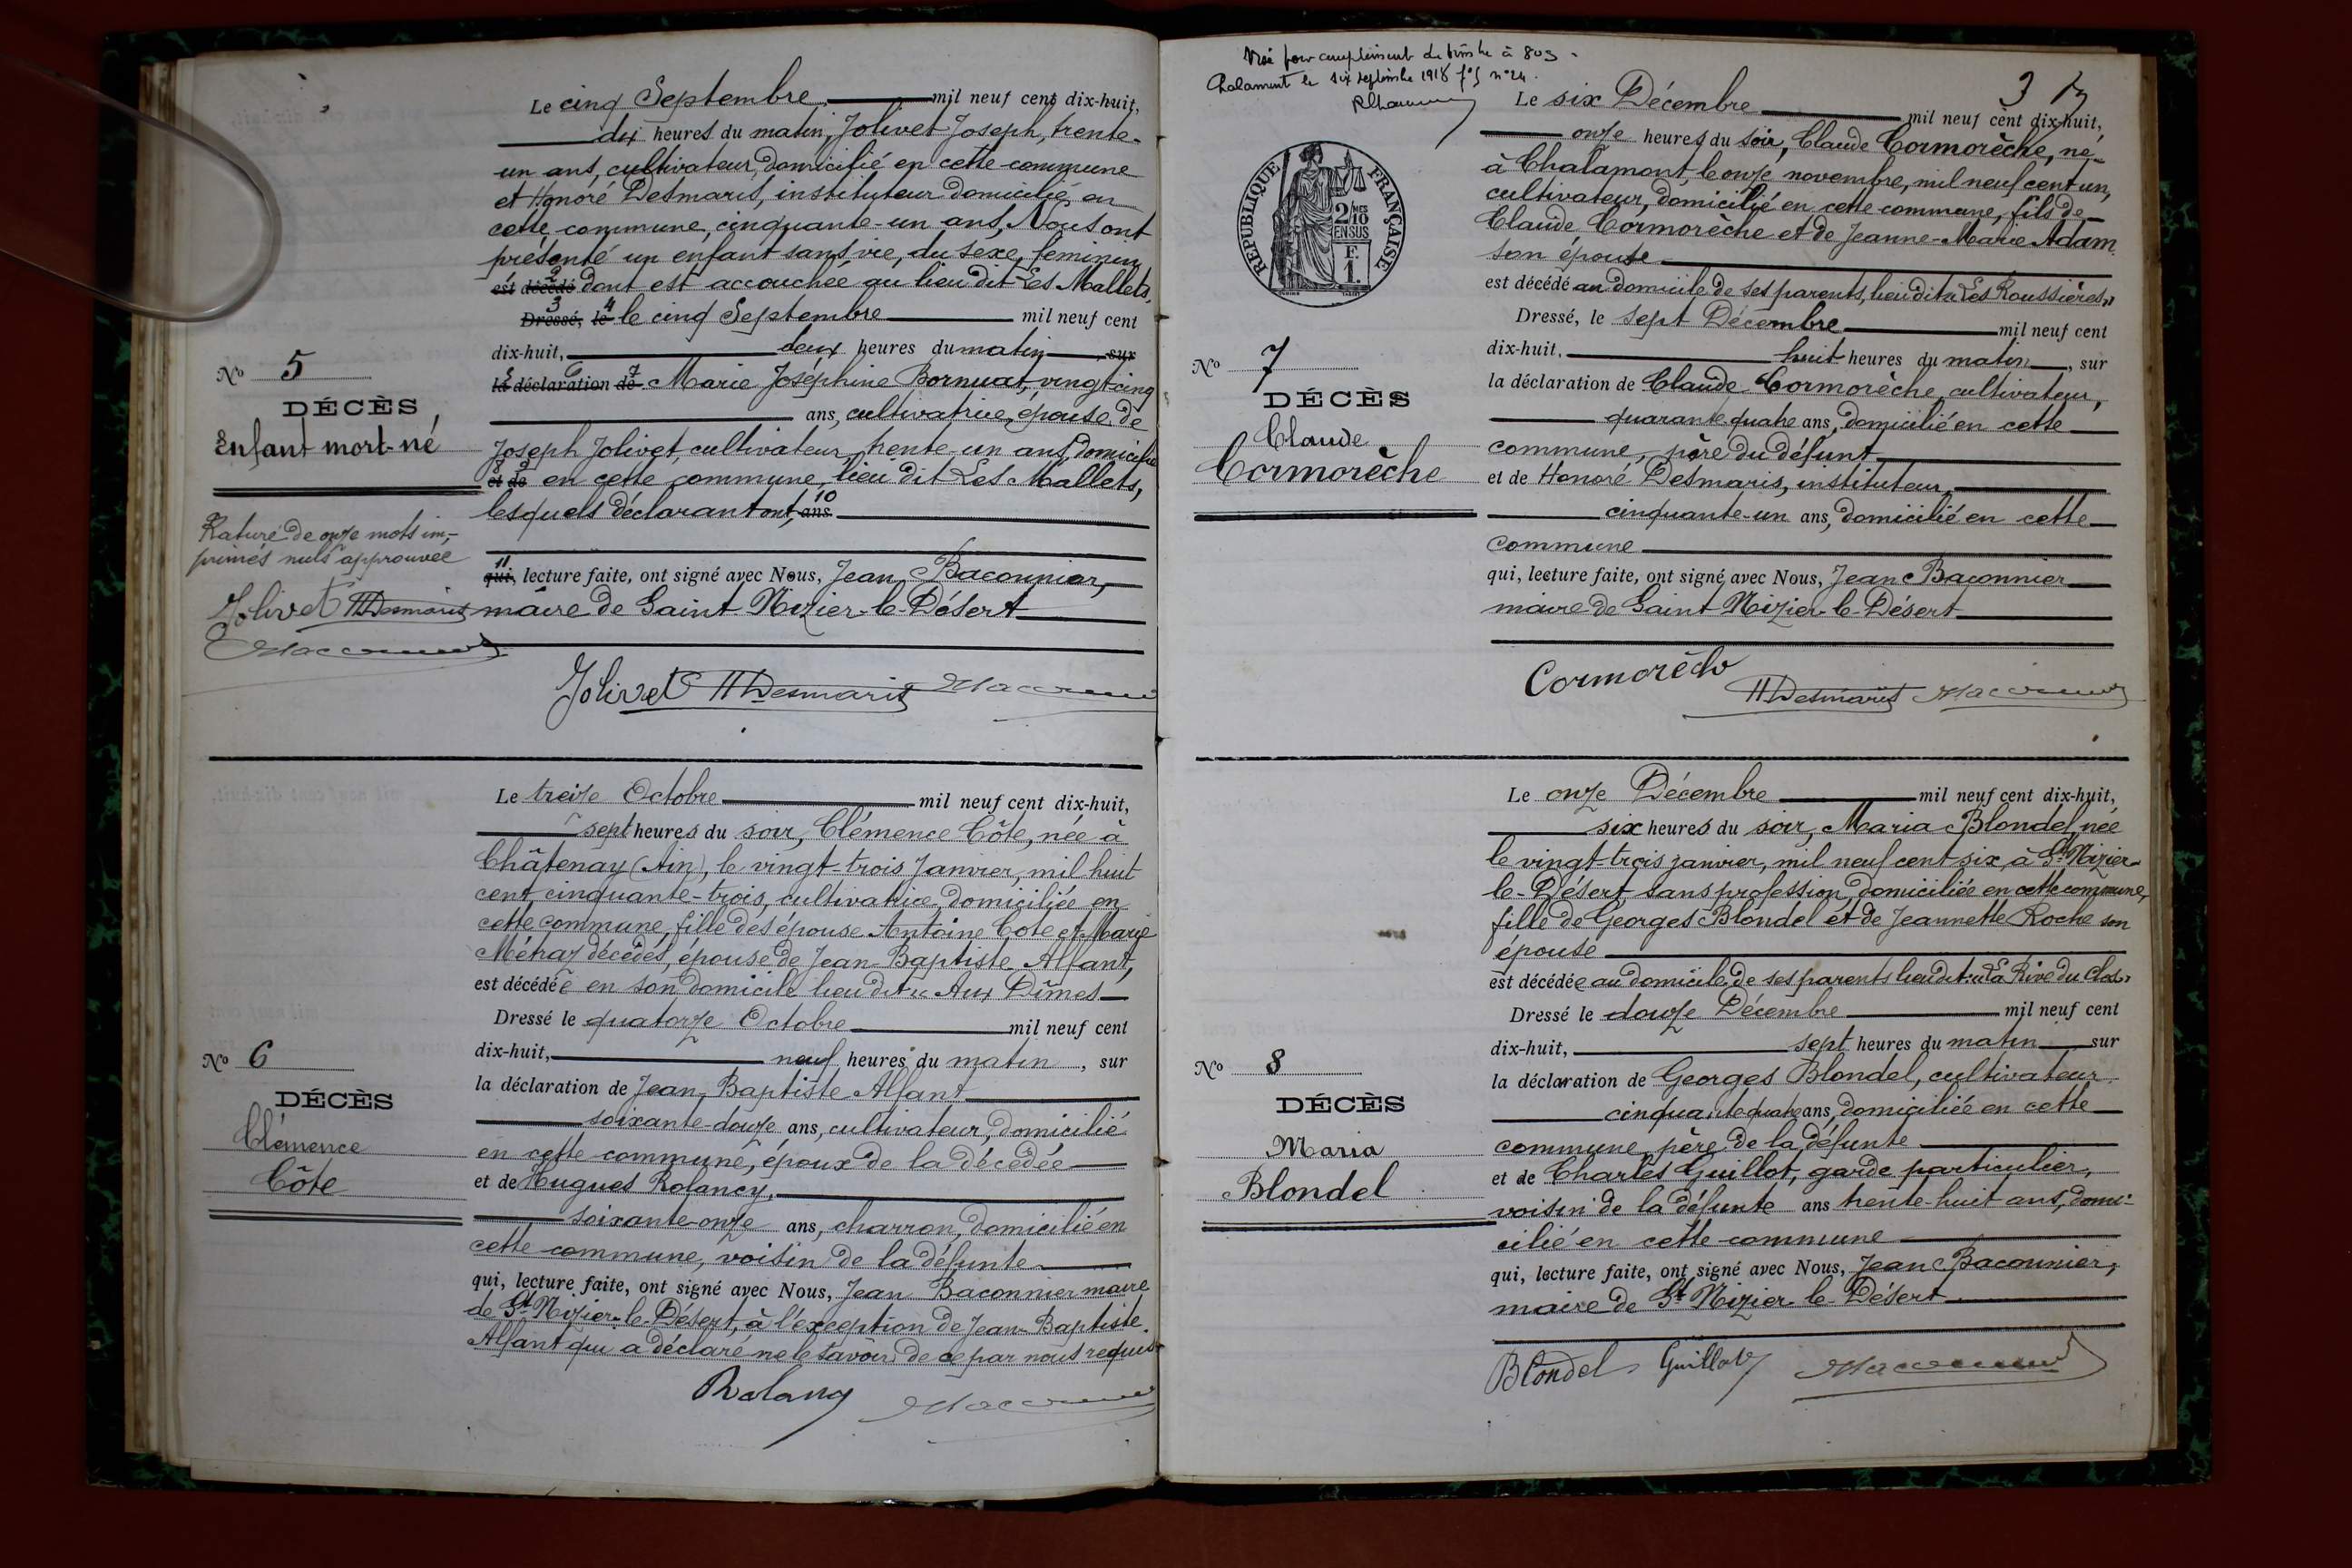 Le cinq Septembre, mil neuf cent dix-huit,
dix heures du matin, Jolivet Joseph, trente-
un ans, cultivateur, domicilié en cette commune
et Honoré Desmaris, instituteur domicilié en
cette commune, cinquante-un ans, Nous ont
présenté un enfant sans vie, du sexe féminin
est décédé dont est accouchée au lieu dit Les Mallets,
Dressé, le le cinq Septembre mil neuf cent
dix-huit, deux heures du matin, sur
la déclaration de Marie Joséphine Bornuat, vingt-cinq
ans, cultivatrice, épouse de
Joseph Jolivet, cultivateur, trente un ans, domicilié
et de en cette commune, lieu dit Les Mallets,
lesquels déclarant ont, ans
qui, lecture faite, ont signé avec Nous, Jean Baconnier,
maire de Saint-Nizier-le-Désert
Jolivet HDesmaris
No 5
DÉCÈS
Enfant mort-né
Raturé de onze mots im-
primés nuls approuvée
Jolivet HDesmaris
Le treize Octobre mil neuf cent dix-huit,
sept heures du soir, Clémence Côte, née à
Châtenay (Ain), le vingt-trois Janvier, mil huit
cent cinquante-trois, cultivatrice, domiciliée en
cette commune, fille des épouse Antoine Cote et Marie
décédés, épouse de Jean-Baptiste Alfant,
est décédée en son domicile lieu dit « Aux Dîmes
Dressé le quatorze Octobre mil neuf cent
dix-huit, neuf heures du matin, sur
la déclaration de Jean-Baptiste Alfant
soixante-douze ans, cultivateur, domicilié
en cette commune, époux de la décédée
et de Hugues Rolancy,
soixante-onze ans, charron, domicilié en
cette commune, voisin de la défunte
qui, lecture faite, ont signé avec Nous, Jean Baconnier maire
de St Nizier-le-Désert, à l'exception de Jean-Baptiste
Alfant qui a déclaré ne le savoir de ce par nous requis
No 6
DÉCÈS
Clémence
Côte
Visé pour complément de timbre à 80
Chalamont le six septembre 1918 n° 24
3
RÉPUBLIQUE FRANÇAISE
2/10
EN SUS
F.
1.
Le six Décembre mil neuf cent dix-huit,
onze heures du soir, Claude Cormorèche, né
à Chalamont, le onze novembre, mil neuf cent un,
cultivateur, domicilié en cette commune, fils de
Claude Cormorèche et de Jeanne-Marie Adam
son épouse
est décédé au domicile de ses parents, lieu dit « Les Roussières »
Dressé, le sept Décembre mil neuf cent
dix-huit, huit heures du matin, sur
la déclaration de Claude Cormorèche, cultivateur,
quarante quatre ans, domicilié en cette
commune, père du défunt
et de Honoré Desmaris, instituteur,
cinquante-un ans, domicilié en cette
commune
qui, lecture faite, ont signé avec Nous, Jean Baconnier
maire de Saint-Nizier-le-Désert
No 7
DÉCÈS
Claude
Cormorèche
Cormorèche
HDesmaris
Le onze Décembre mil neuf cent dix-huit,
six heures du soir, Maria Blondel, née
le vingt-trois janvier, mil neuf cent six, à St Nizier-
le-Désert sans profession, domiciliée en cette commune,
fille de Georges Blondel et de Jeannette Roche son
épouse
est décédée au domicile de ses parents lieu dit « La Rive du Clos »
Dressé le douze Décembre mil neuf cent
dix-huit, sept heures du matin sur
la déclaration de Georges Blondel, cultivateur
cinquante quatre ans, domiciliée en cette
commune, père de la défunte
et de Charles Guillot, garde particulier,
voisin de la défunte ans trente-huit ans, domi-
cilié en cette commune
qui, lecture faite, ont signé avec Nous, Jean Baconnier,
maire de St Nizier-le-Désert
No 8
DÉCÈS
Maria
Blondel
Blondel Guillot